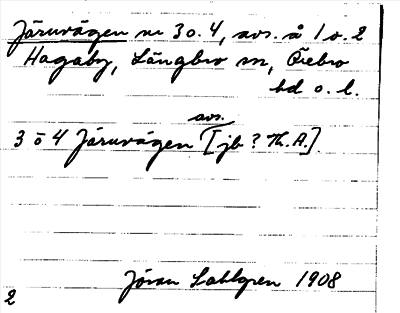 Järuvägen nr 3 o. 4, avs. å 1 o. 2
Hagaby, Längbro sn, Örebro
hd o. l.
avs.
3 o 4 Järuvägen [jb? Th. A.]
Jöran Sahlgren 1908
2